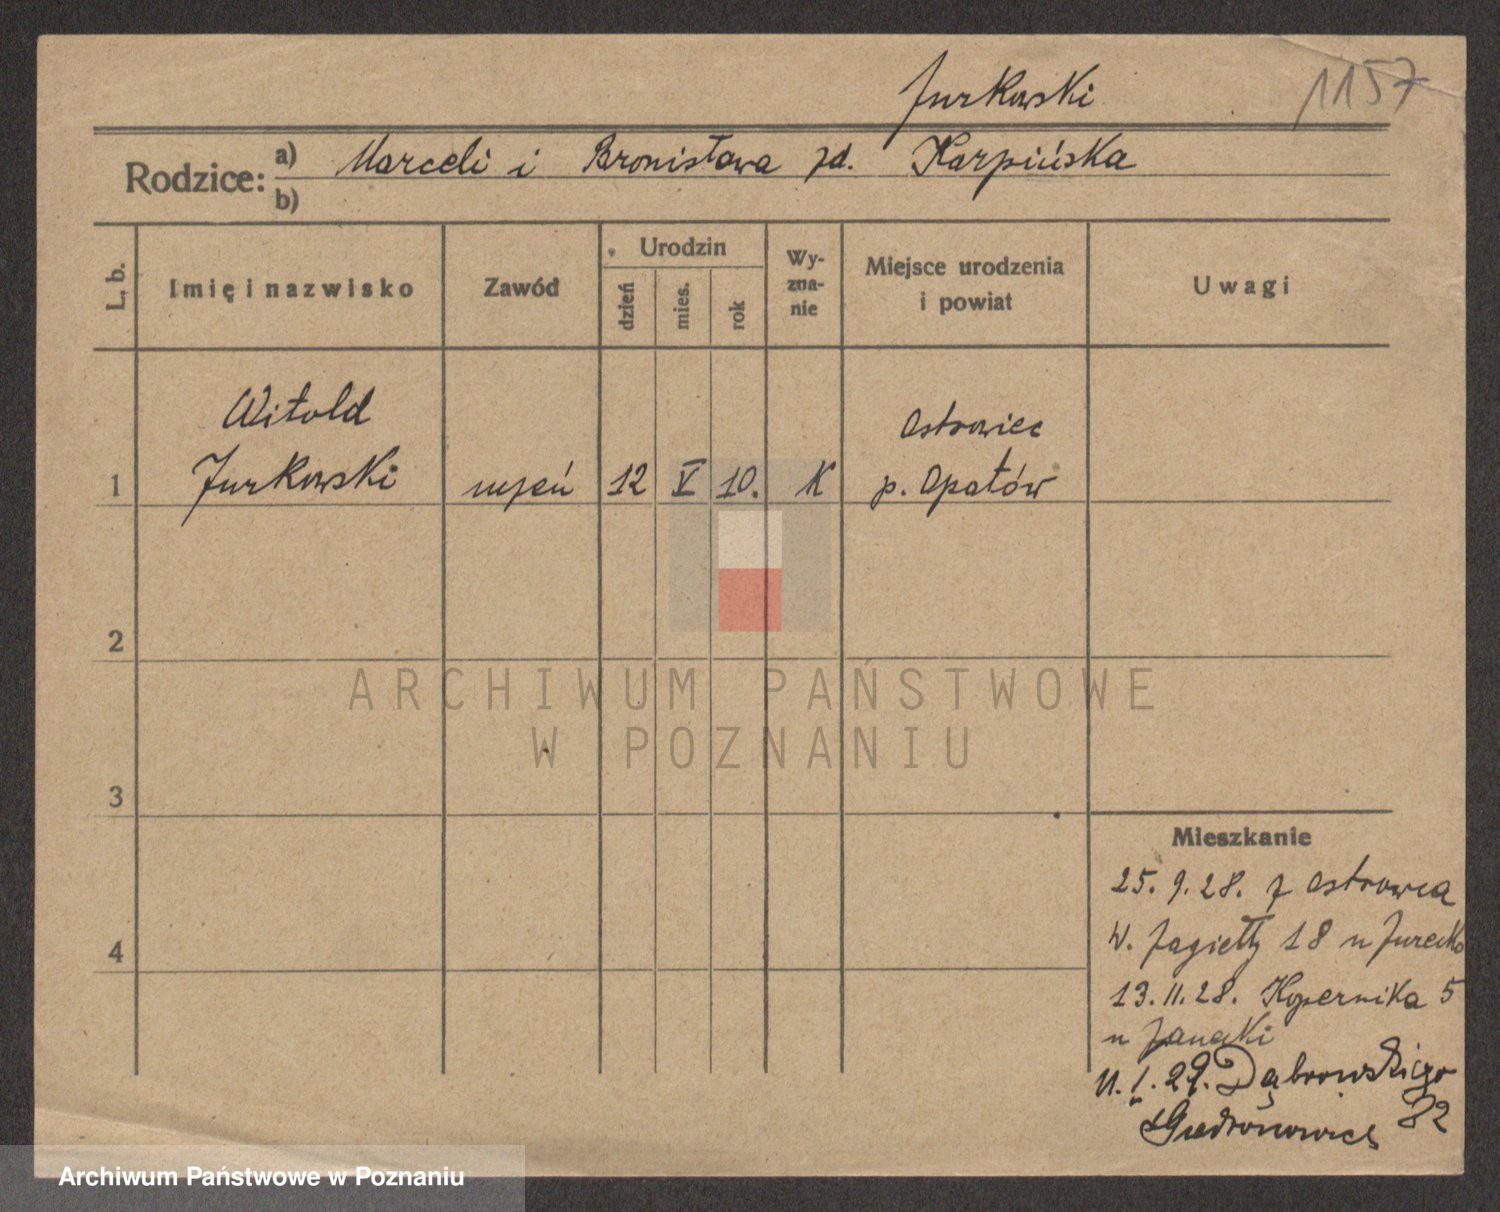 Jurkowski
1157
Rodzice: a) Marceli i Bronisława zd. Karpińska
b)
L. b.
Imię i nazwisko
Zawód
Urodzin
dzień
mies.
rok
Wy-
zna-
nie
Miejsce urodzenia
i powiat
Uwagi
Witold
Ostrowiec
1 Jurkowski uczeń 12 V 10. K p. Opatów
2
ARCHIWUM PAŃSTWOWE
W POZNANIU
3
Mieszkanie
25. 9. 28. z Ostrowca
W. Jagiełły 18 u
4
13. 11. 28. Kopernika 5
u
11. 1. 29. Dąbrowskiego
82
Archiwum Państwowe w Poznaniu